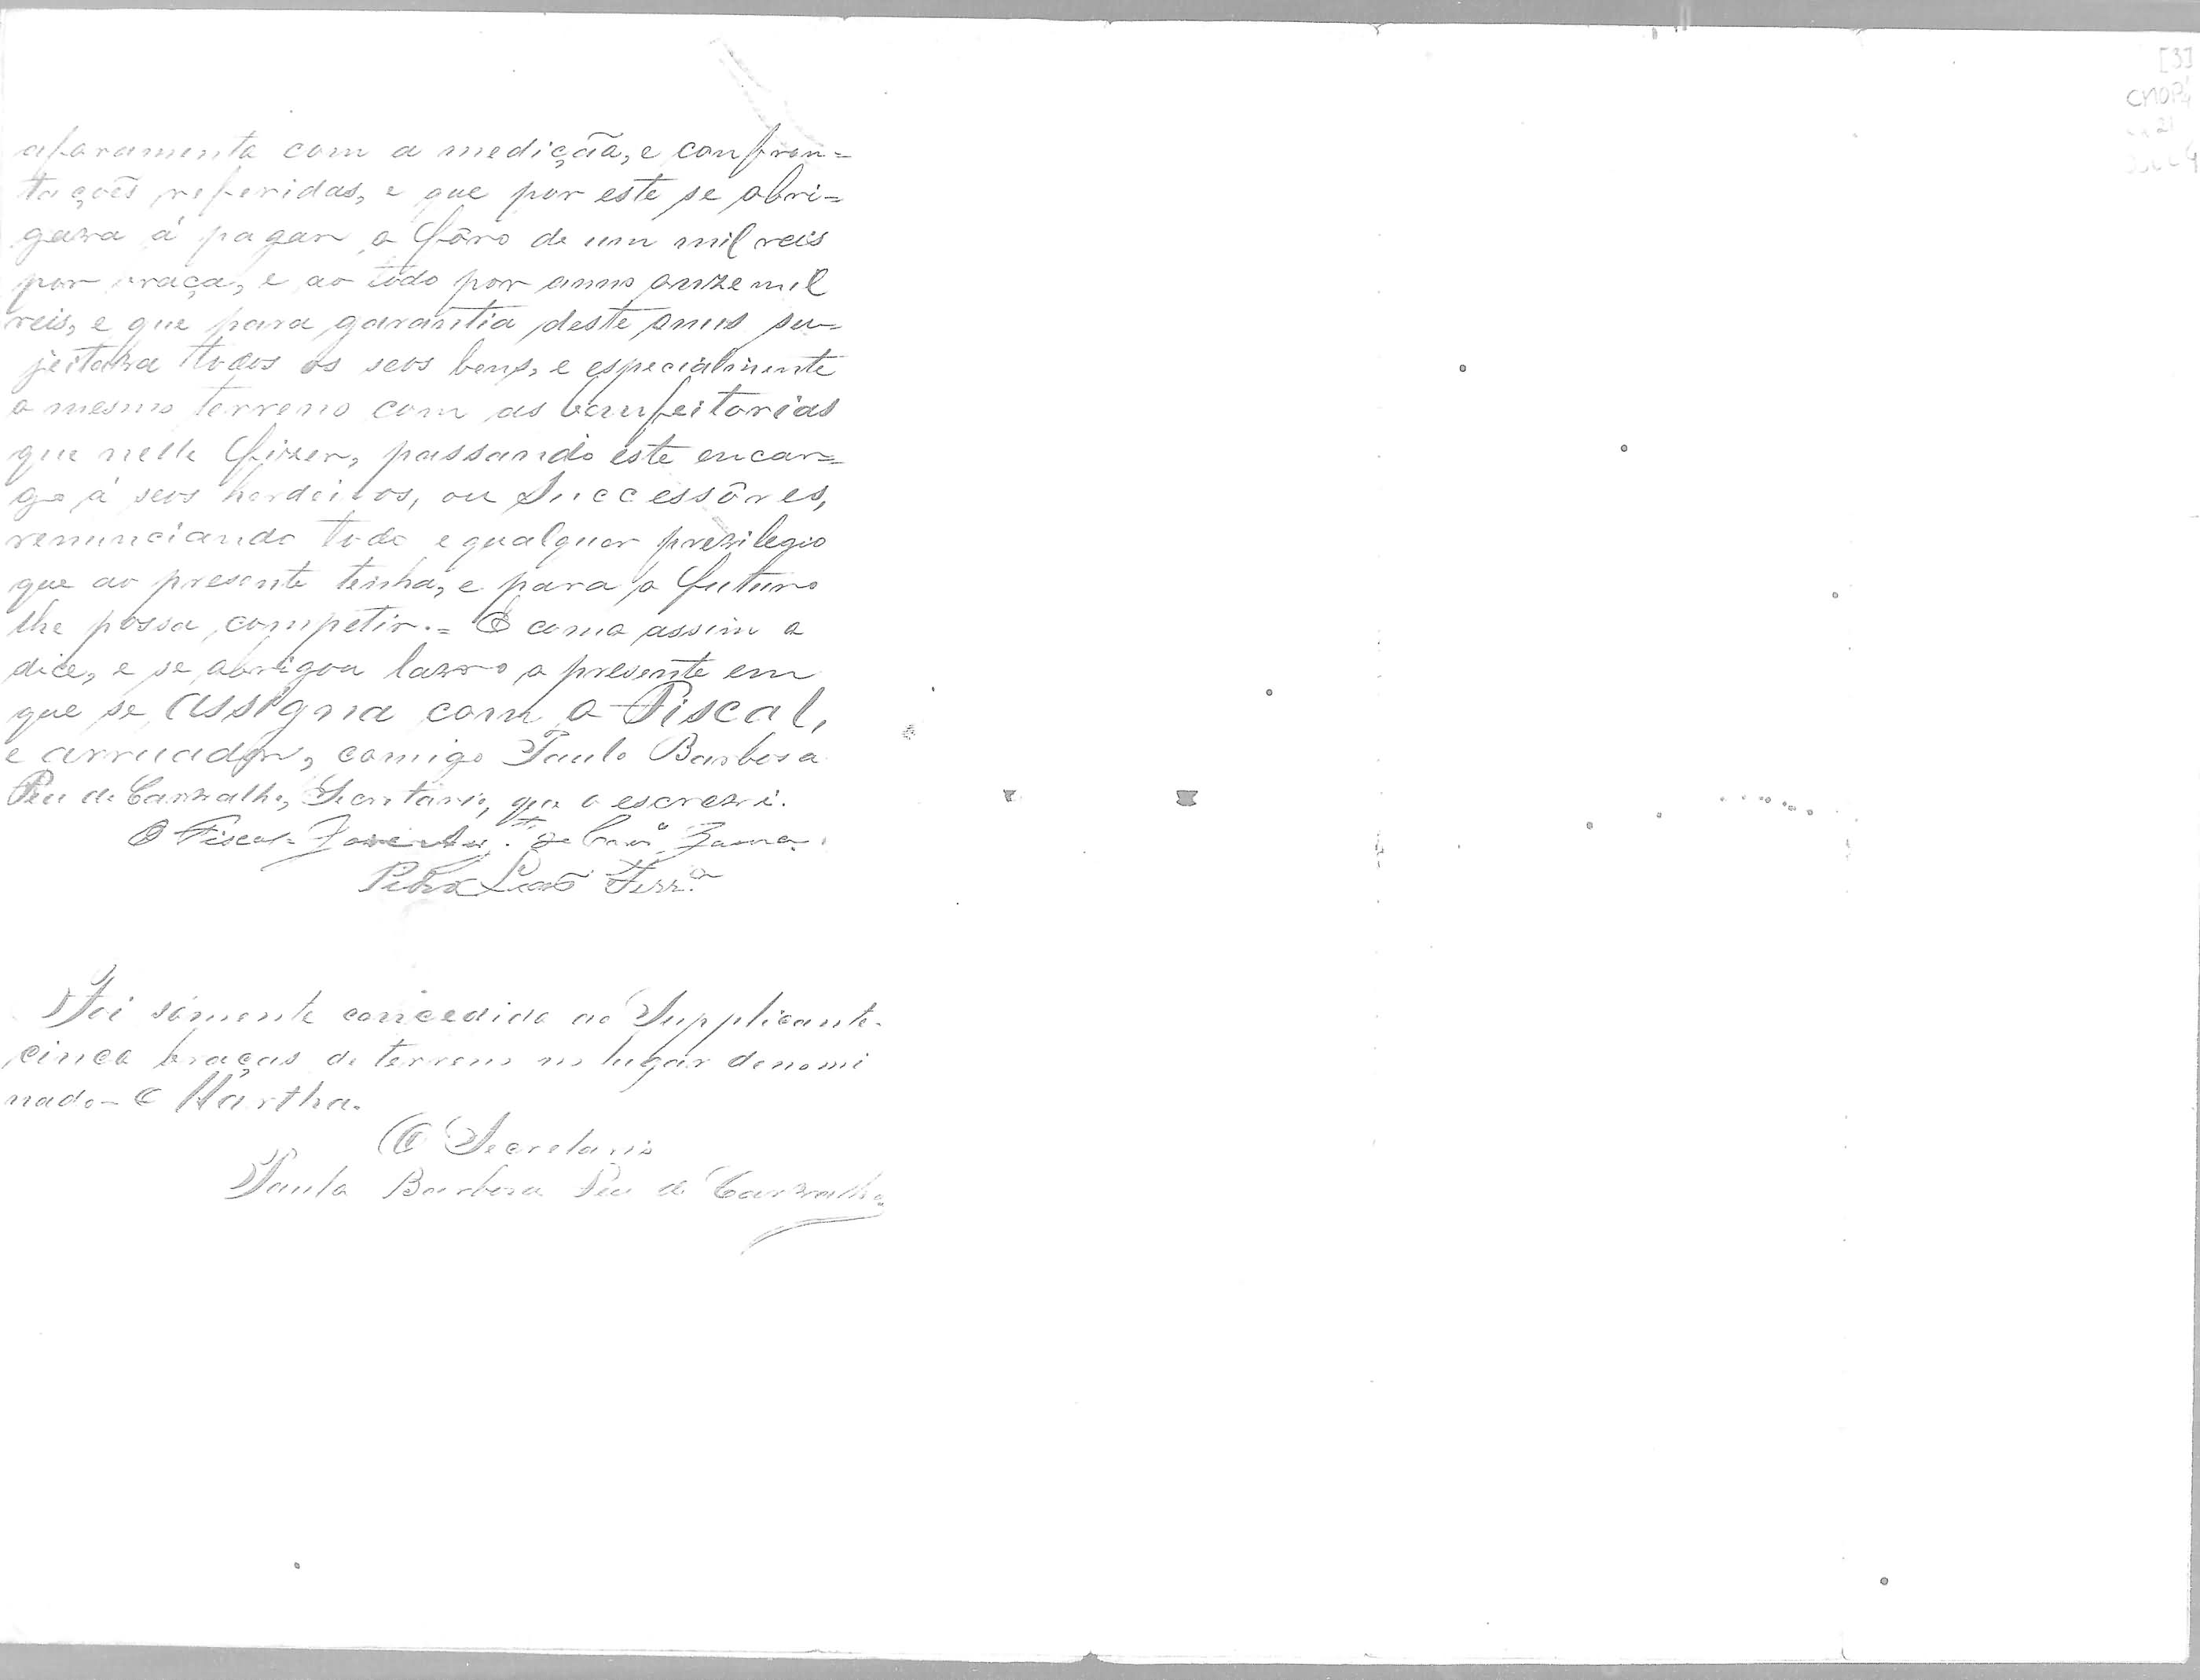 aforamento com a medição, e confron=
tações referidas, e que por este se obri=
gava á pagar o fôro de um mil reis
por braça, e ao todo por anno onze mil
reis, e que para garantia deste onus su=
jeitava todos os seos bens, e especialmente
o mesmo terreno com as bemfeitorias
que nelle fizer, passando este encar=
go á seos herdeiros, ou Successôres,
renunciando todo e qualquer previlegio
que ao presente tenha, e para o futuro
lhe possa competir.= E como assim o
dice, e se obrigou lavro o presente em
que se assigna com o Fiscal,
e arruador, comigo Paulo Barbosa
Peu de Carvalho, Secretario, que o escrevi.
O Fiscal
Pedro Leão Ferr.ª
Foi sómente concedido ao Supplicante
cinco braças de terreno no lugar denomi
nado - O Martha.
O Secretario
Paulo Barbosa Peu de Carvalho
[3]
CMOP
21